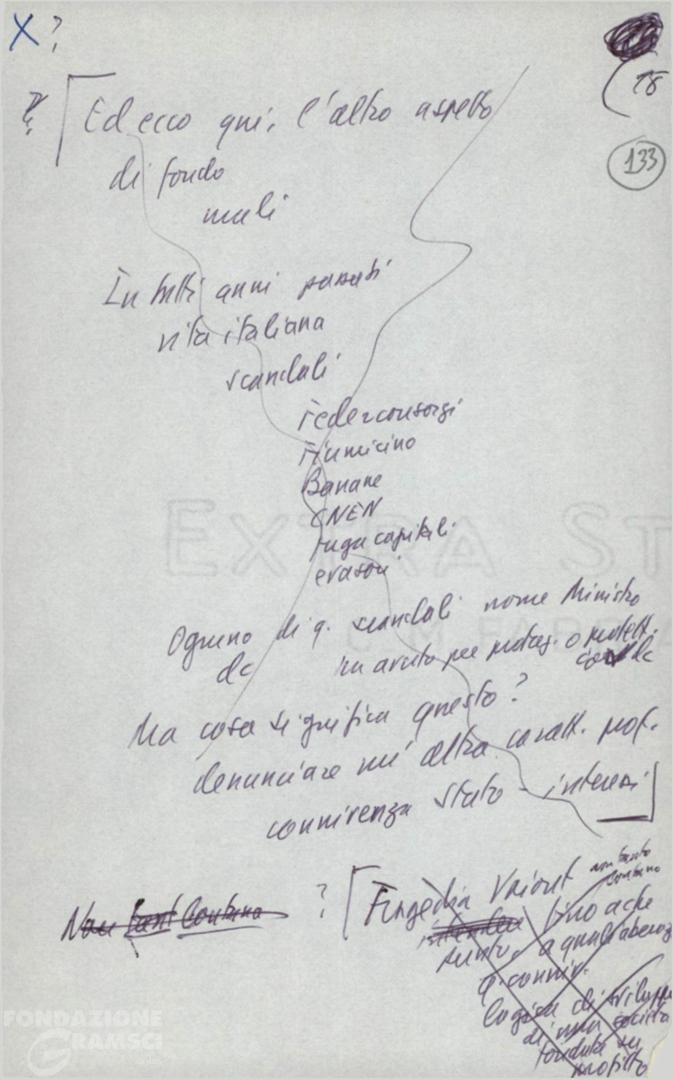 X ?
18
133
? [ Ed ecco qui, l'altro aspetto
di fondo
mali
In tutti anni passati
vita italiana
scandali
Federconsorzi
Fiumicino
Banane
CNEN
fuga capitali
evasori
Ognuno di q. scandali nome Ministro
dc ha avuto per protag. o protett.
dc
Ma cosa significa questo?
denunciare un'altra caratt. prof.
connivenza Stato - interessi ]
Non tant lontana
? [ Tragedia Vaiont non tanto
lontano
fino a che
punto, a quali aberraz
q. conniv.
logica di sviluppo
di una società
fondata su
profitto
EXTRA ST
FONDAZIONE
GRAMSCI